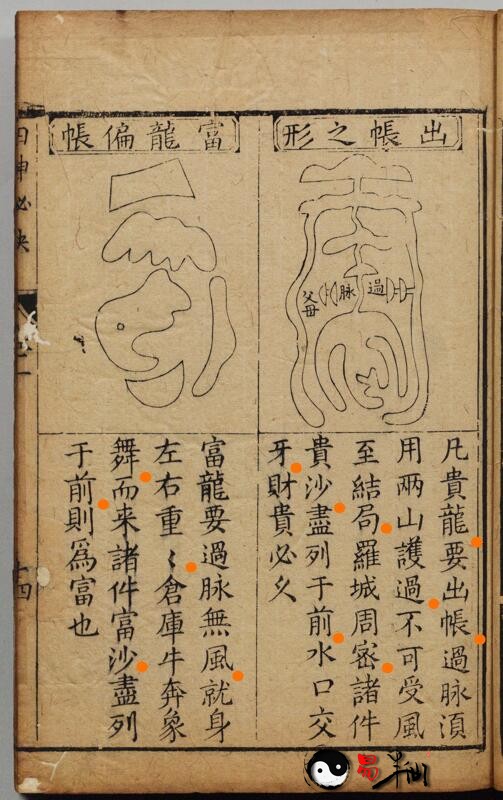 出帳之形
過脉
父母
凡貴龍要出帳過脉湏
用兩山護過不可受風
至結局羅城周密諸件
貴沙盡列于前水口交
牙財貴必久
富龍偏帳
富龍要過脉無風就身
左右重〻倉庫牛奔象
舞而来諸件富沙盡列
于前則爲富也
易半仙